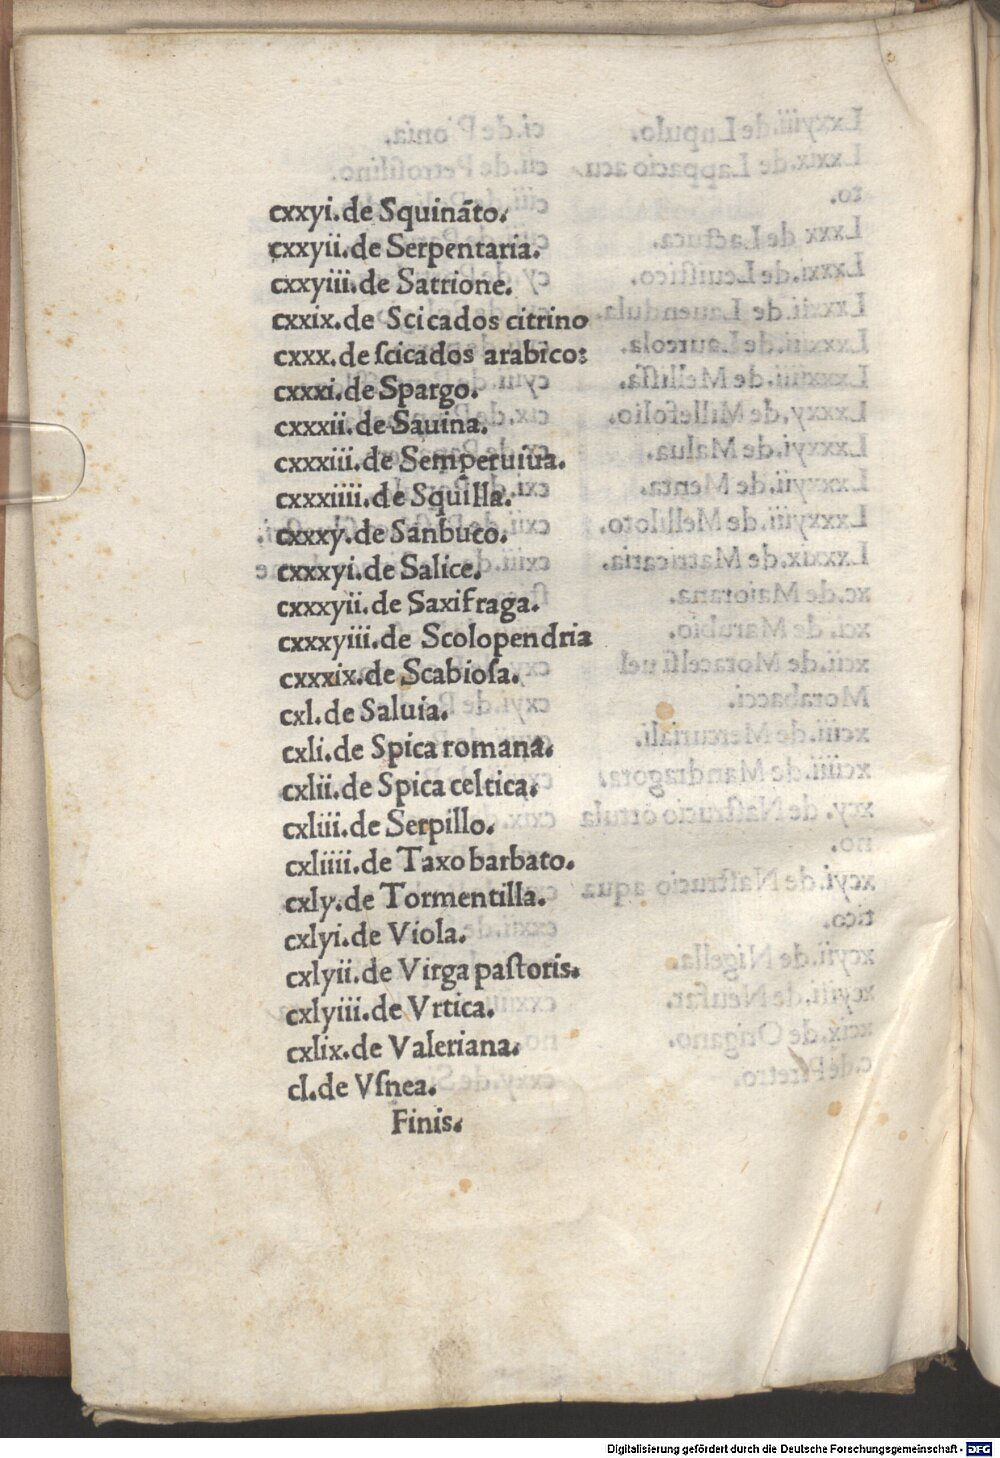 cxxyi.de Squinãto.
cxxyii.de Serpentaria.
cxxyiii.de Satrione.
cxxix.de Scicados citrino
cxxx.de ſcicados arabico:
cxxxi.de Spargo.
cxxxii.de Sauina.
cxxxiii.de Semperuiua.
cxxxiiii.de Squilla.
cxxxy.de Sanbuco.
cxxxyi.de Salice.
cxxxyii.de Saxifraga.
cxxxyiii.de Scolopendria
cxxxix.de Scabioſa.
cxl.de Saluia.
cxli.de Spica romana.
cxlii.de Spica celtica.
cxliii.de Serpillo.
cxliiii.de Taxo barbato.
cxly.de Tormentilla.
cxlyi.de Viola.
cxlyii.de Virga paſtoris.
cxlyiii.de Vrtica.
cxlix.de Valeriana.
cl.de Vſnea.
Finis.
Digitalisierung gefördert durch die Deutsche Forschungsgemeinschaft - DFG